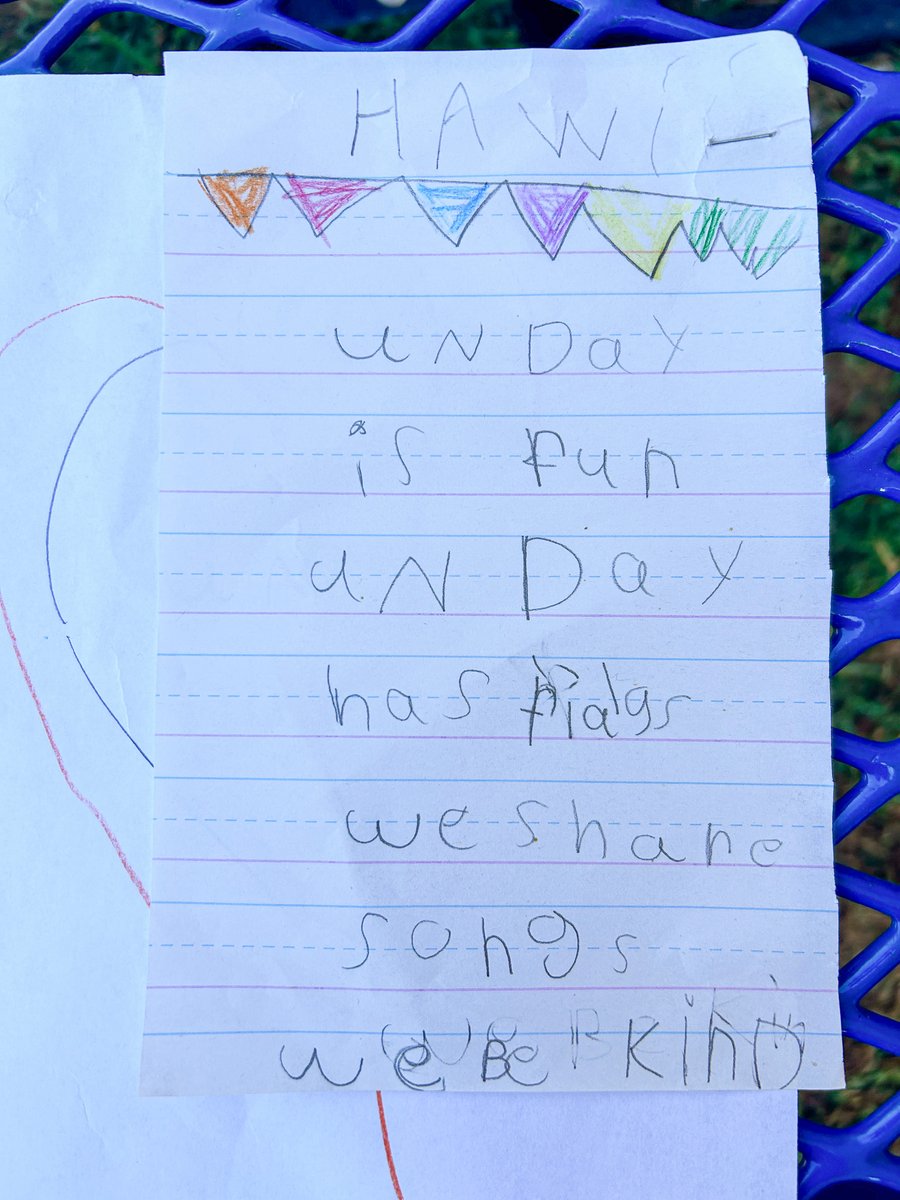 HAWI
UN Day
is fun
UN Day
has flags
we share
songs
we Be KinD